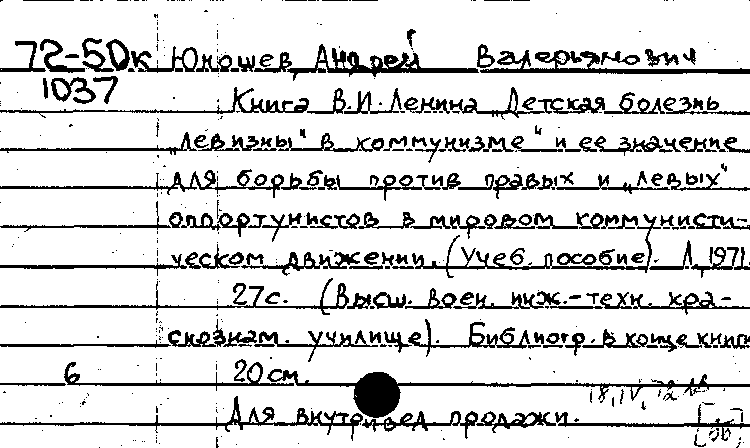 72-50к Юношев, Андрей Валерьянович
1037
Книга В.И. Ленина „Детская болезнь
„левизны" в коммунизме" и ее значение
для борьбы против правых и „левых"
оппортунистов в мировом коммунисти-
ческом движении. (Учеб. пособие). Л., 1971.
27с. (Высш. воен. инж.-техн. кра-
снознам. училище). Библиогр. в конце книги
6 20 см.
Для внутривед. продажи.
18.IV.72